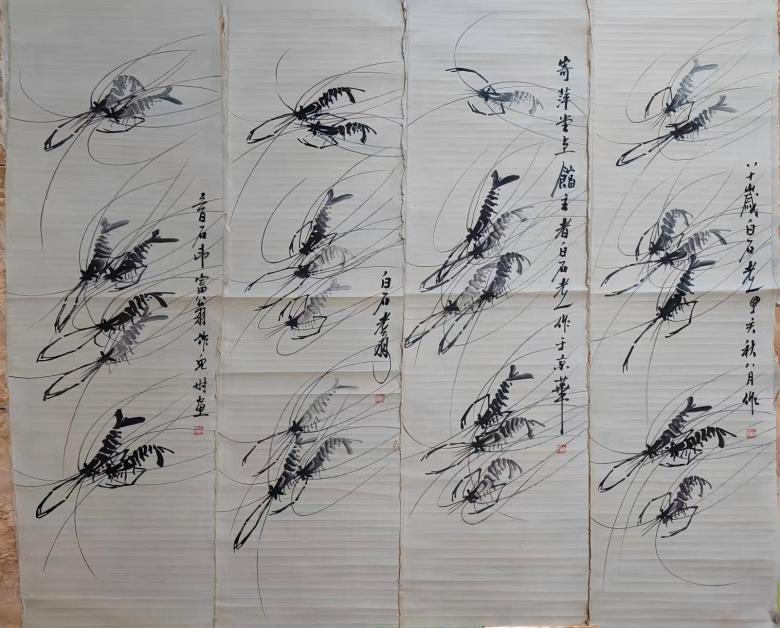 八十歲白石老人甲亥秋八月作
寄萍堂上館主者白石老人作于京華
白石老翁
三百石印富翁作兒时畫